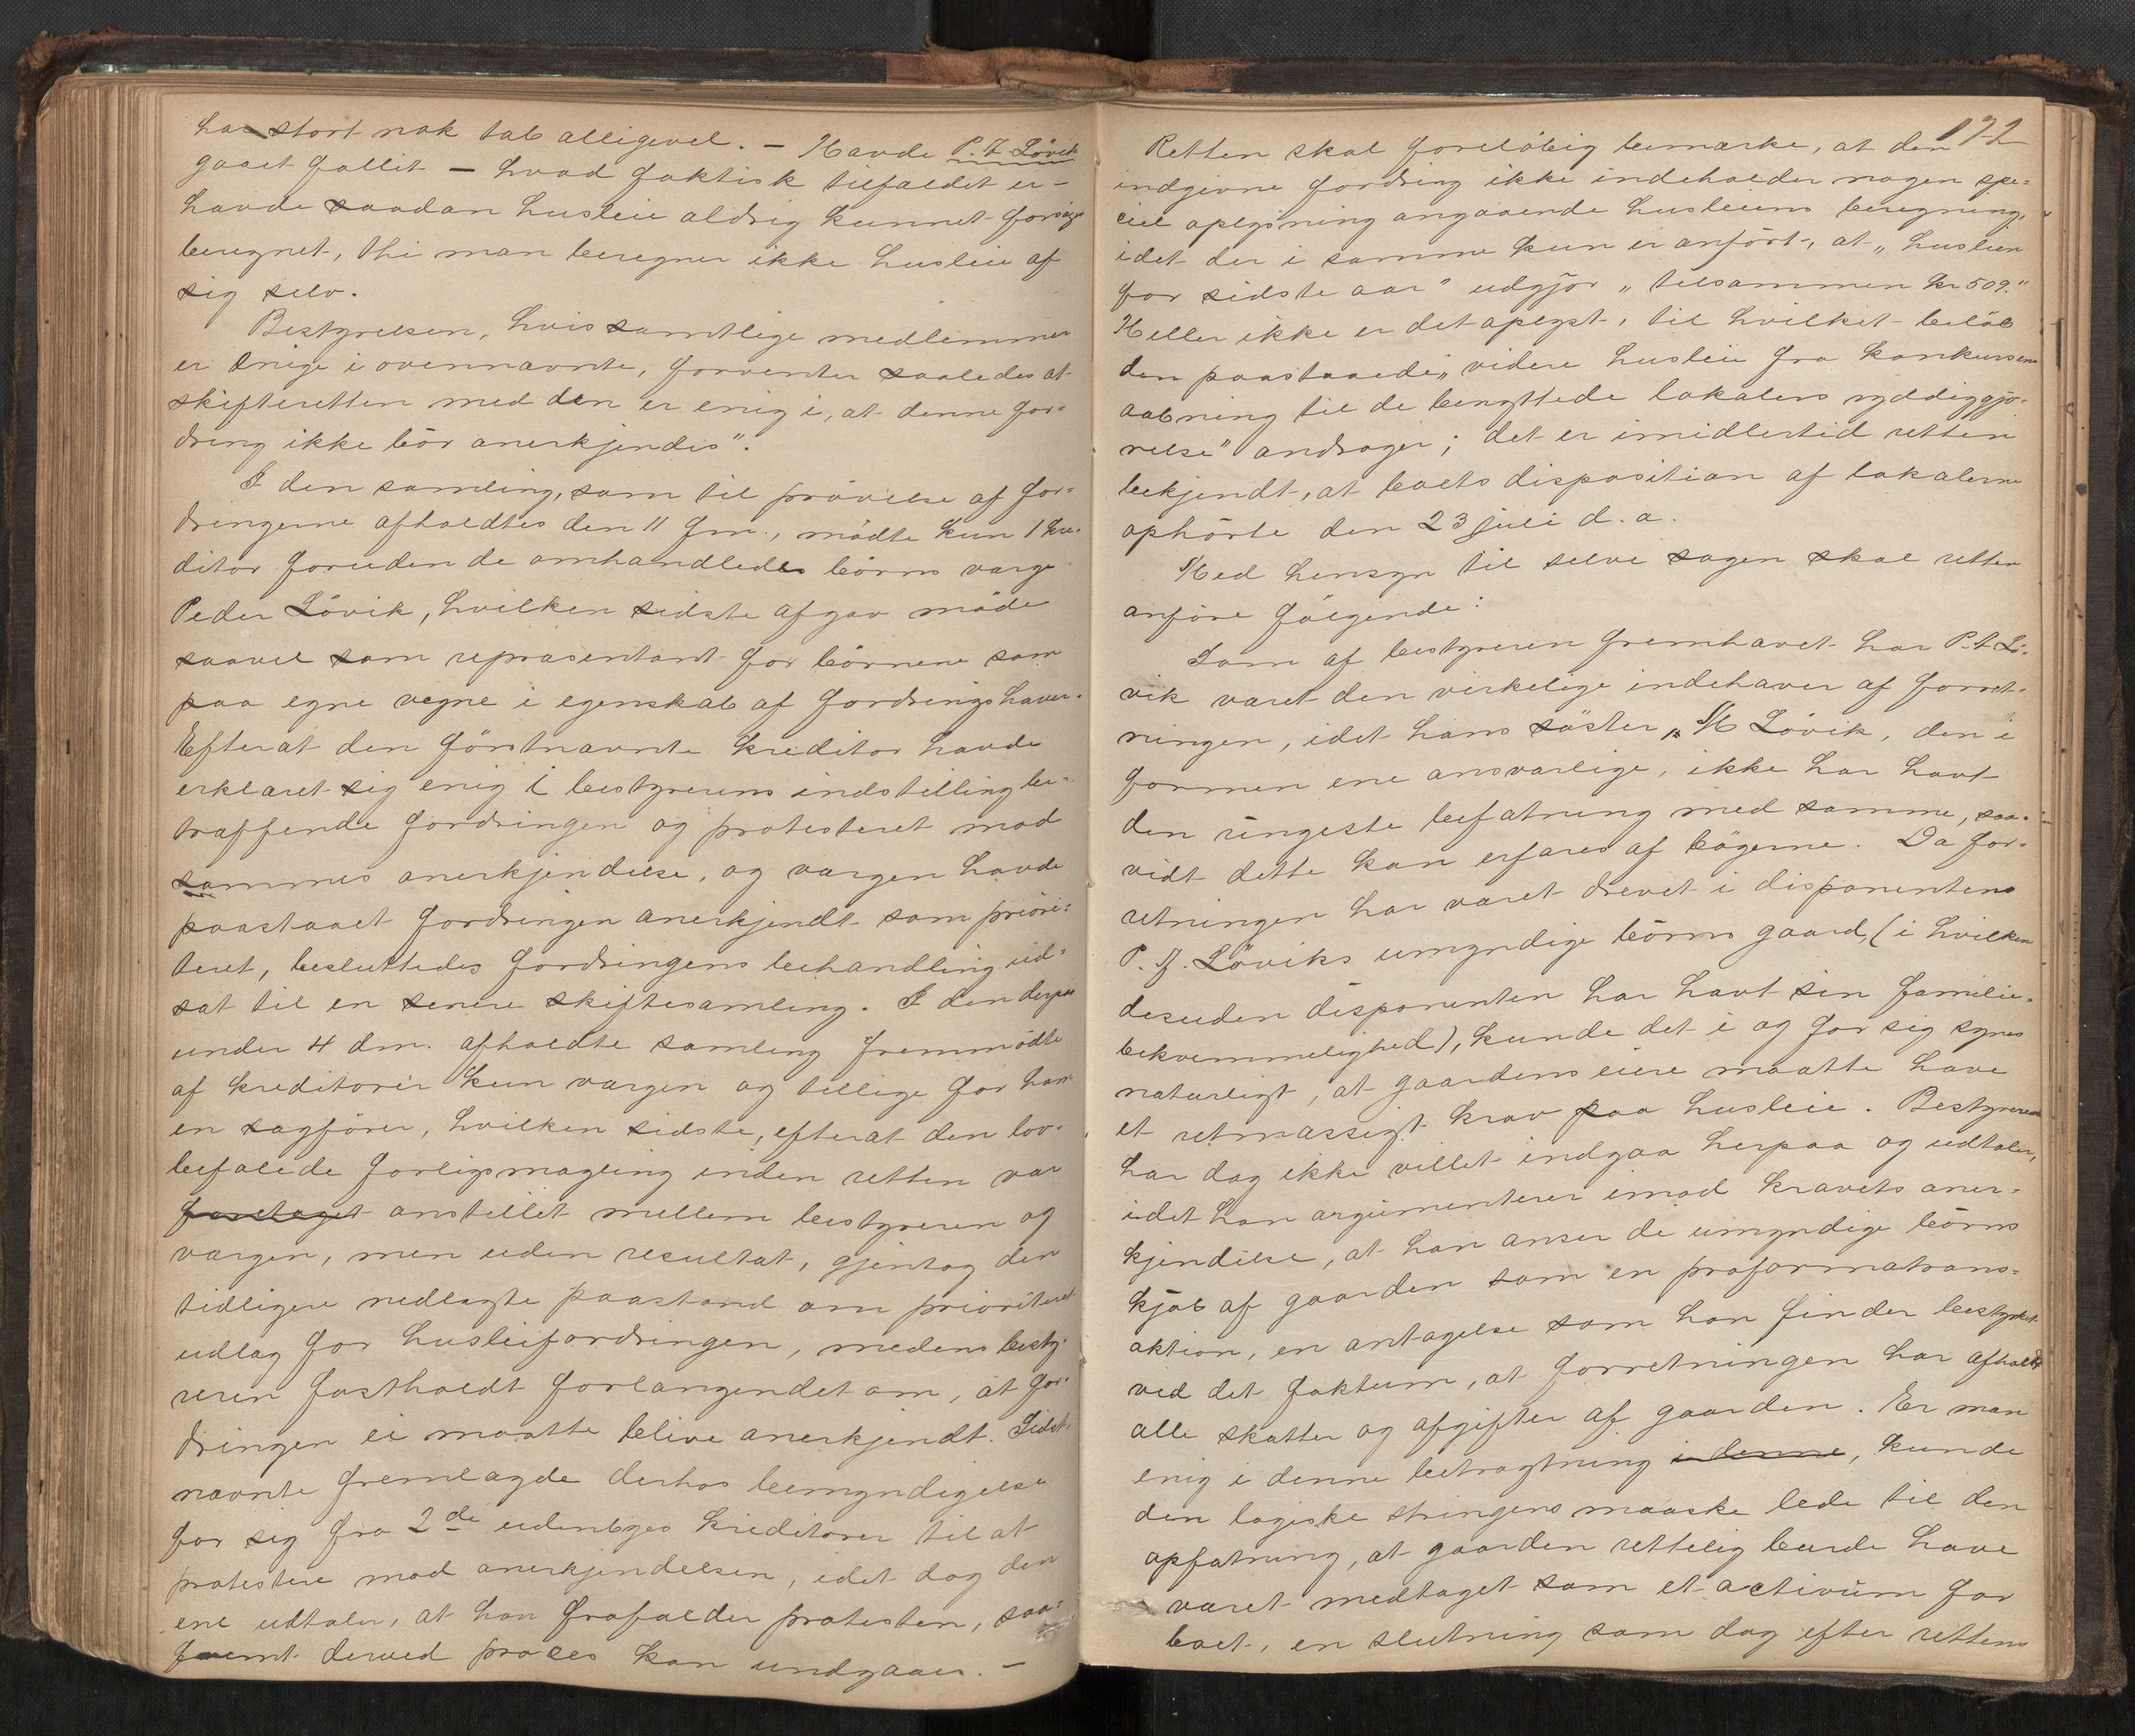 har stort nok tab alligevel. – Havde P. F. Lövik
gaaet fallit – hvad faktisk tilfældet er –
havde saadan husleie aldrig kunnet
beregnet, thi man beregner ikke husleie af
sig selv.
Bestyrelsen, hvis samtlige medlemmer
er enige i ovennævnte, forventer saaledes at
skifteretten med den er enig i, at denne for-
dring ikke bör anerkjendes".
I den samling, som til prövelse af for-
dringerne afholdtes den 11 f.m., mödte kun 1 kre-
ditor foruden de omhandlede börns værge
Peder Lövik, hvilken sidste afgav möde
saavel som repræsentant for börnene som
paa egne vegne i egenskab af fordringshaver.
Efterat den förstnævnte kreditor havde
erklæret sig enig i bestyrerens indstilling be-
træffende fordringen og protesteret mod
sammes anerkjendelse, og værgen havde
paastaaet fordringen anerkjendt som priori-
teret, besluttedes fordringens behandling ud-
sat til en senere skiftesamling. I den derpaa
under 4 dm. afholdte samling fremmödte
af kreditorer kun værgen og tillige for ham
en sagförer, hvilken sidste, efterat den lov-
befalede forligsmægling inden retten var
foretaget anstillet mellem bestyreren og
værgen, men uden resultat, gjentog den
tidligere nedlagte paastand om prioriteret
udlæg for husleifordringen, medens besty-
reren fastholdt forlangendet om, at for-
dringen ei maatte blive anerkjendt. Sidst-
nævnte fremlagde derhos bemyndigelse
for sig fra 2de udenbyes kreditorer til at
protestere mod anerkjendelsen, idet dog den
ene udtaler, at han frafalder protesten, saa-
fremt derved proces kan undgaaes. –
172
Retten skal foreløbig bemærke, at den
indgivne fordring ikke indeholder nogen spe-
ciel oplysning angaaende husleiens beregning,
idet der i samme kun er anfört, at „husleien
for sidste aar" udgjör „tilsammen kr 509."
Heller ikke er det oplyst, til hvilket belöb
den paastaaede „videre husleie fra konkursens
aabning til de benyttede lokalers ryddiggjö-
relse" andrager; det er imidlertid retten
bekjendt, at boets disposition af lokalerne
ophörte den 23 juli d. a.
Med hensyn til selve sagen skal retten
anföre fölgende:
Som af bestyreren fremhævet har P. F. Lö-
vik været den virkelige indehaver af forret-
ningen, idet hans söster, M Lövik, den i
formen ene ansvarlige, ikke har havt
den ringeste befatning med samme, saa-
vidt dette kan erfares af bögerne. Da for-
retningen har været drevet i disponentens
P. F. Löviks umyndige börns gaard, (i hvilken
desuden disponenten har havt sin familie-
bekvemmelighed), kunde det i og for sig synes
naturligt, at gaardens eiere maatte have
et retmæssigt krav paa husleie. Bestyreren
har dog ikke villet indgaa herpaa og udtaler,
idet han argumenterer imod kravets aner-
kjendelse, at han anser de umyndige börns
kjöb af gaarden som en proformatrans-
aktion, en antagelse som han finder bestyrket
ved det faktum, at forretningen har afholdt
alle skatter og afgifter af gaarden. Er man
enig i denne betragtning i denne, kunde
den logiske stringens maaske lede til den
opfatning, at gaarden rettelig burde have
været medtaget som et activum for
boet, en slutning som dog efter rettens